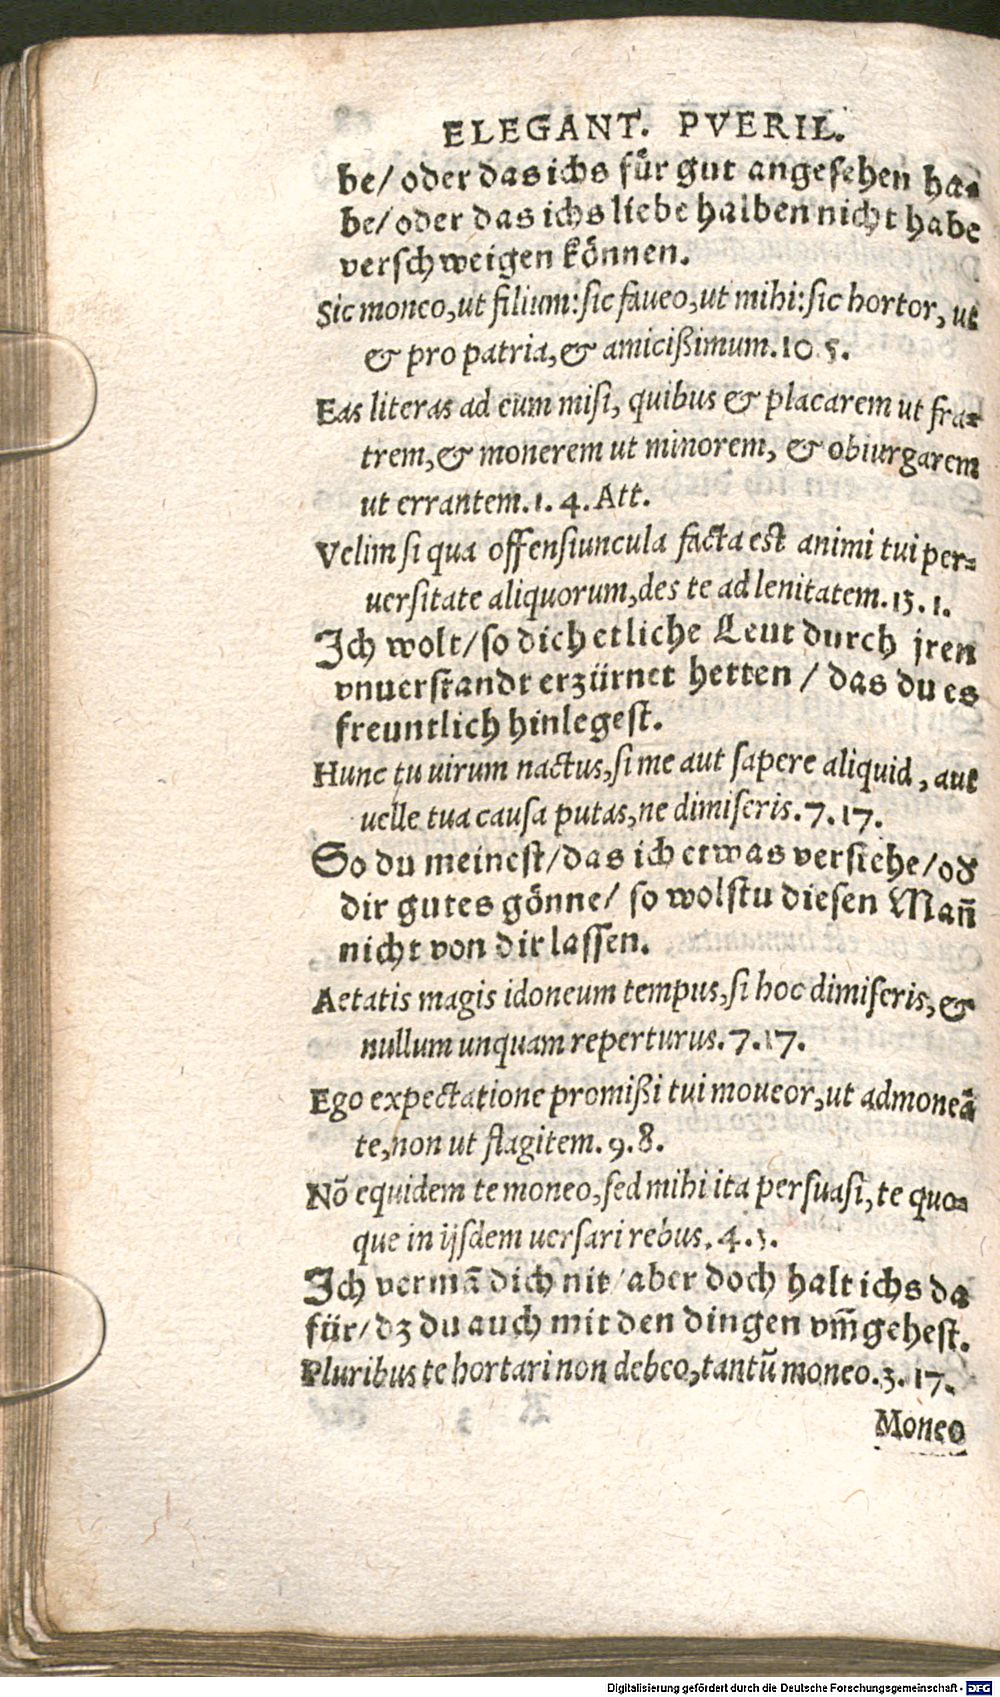 ELEGANT. PVERIL.
be/ oder das ichs für gut angesehen ha-
be/ oder das ichs liebe halben nicht habe
verschweigen können.
Sic moneo, ut filium: sic faueo, ut mihi: sic hortor, ut
& pro patria, & amicißimum. 10 5.
Eas literas ad eum misi, quibus & placarem ut fra-
trem, & monerem ut minorem, & obiurgarem
ut errantem. 1. 4. Att.
Velim si qua offensiuncula facta est animi tui per-
uersitate aliquorum, des te ad lenitatem. 13. 1.
Ich wolt/ so dich etliche Leut durch jren
vnuerstandt erzürnet hetten / das du es
freuntlich hinlegest.
Hunc tu uirum nactus, si me aut sapere aliquid, aut
uelle tua causa putas, ne dimiseris. 7. 17.
So du meinest/ das ich etwas verstehe/ od̕
dir gutes gönne/ so wolstu diesen Man̄
nicht von dir lassen.
Aetatis magis idoneum tempus, si hoc dimiseris, &
nullum unquam reperturus. 7. 17.
Ego expectatione promißi tui moueor, ut admoneā
te, non ut flagitem. 9. 8.
Nō equidem te moneo, sed mihi ita persuasi, te quo-
que in ijsdem uersari rebus. 4. 3.
Ich vermā dich nit/ aber doch halt ichs da
für/ dz du auch mit den dingen vm̄gehest.
Pluribus te hortari non debeo, tantū moneo. 3. 17.
Moneo
Digitalisierung gefördert durch die Deutsche Forschungsgemeinschaft - DFG